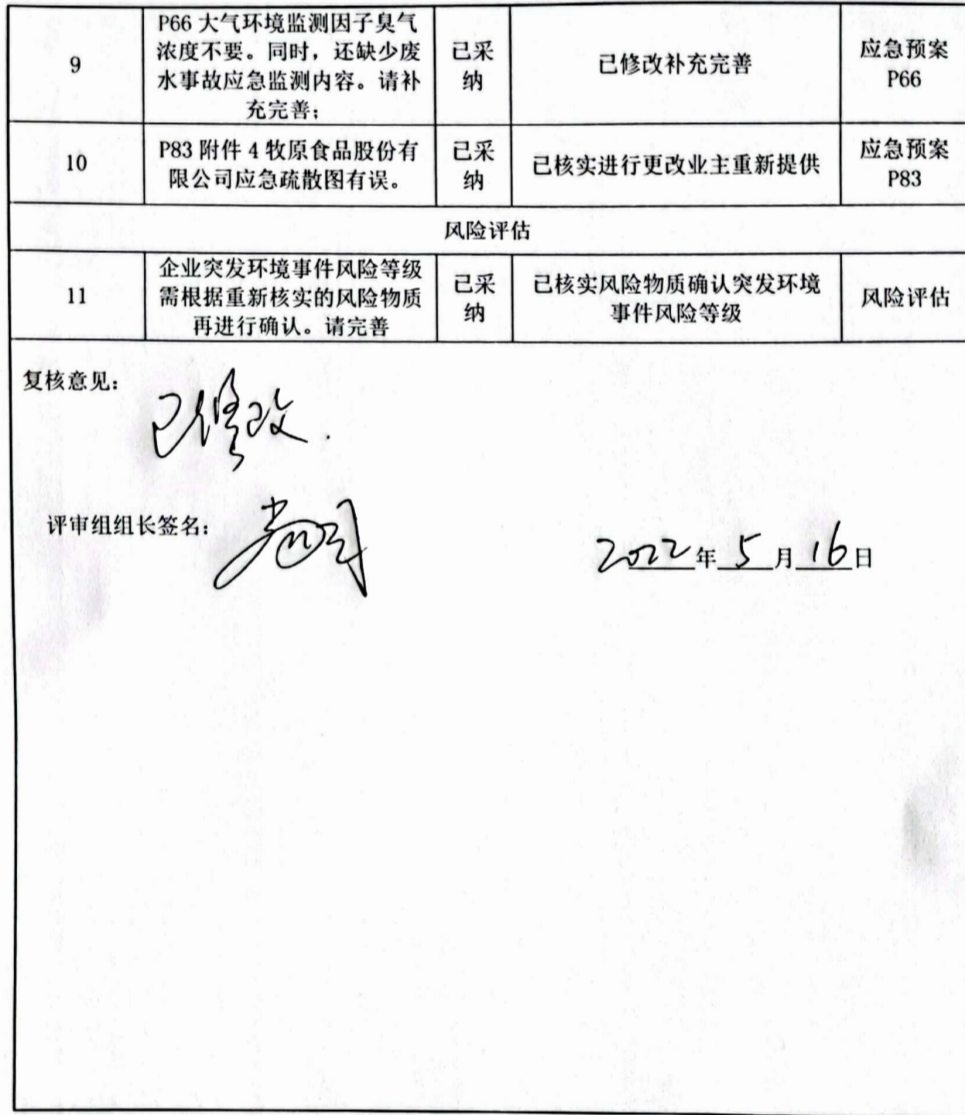 P66 大气环境监测因子臭气
浓度不要。同时，还缺少废
水事故应急监测内容。请补
充完善；
9
已采
纳
已修改补充完善
应急预案
P66
10
P83 附件 4 牧原食品股份有
限公司应急疏散图有误。
已采
纳
已核实进行更改业主重新提供
应急预案
P83
风险评估
11
企业突发环境事件风险等级
需根据重新核实的风险物质
再进行确认。请完善
已采
纳
已核实风险物质确认突发环境
事件风险等级
风险评估
复核意见：
已修改.
评审组组长签名：
2022年5月16日